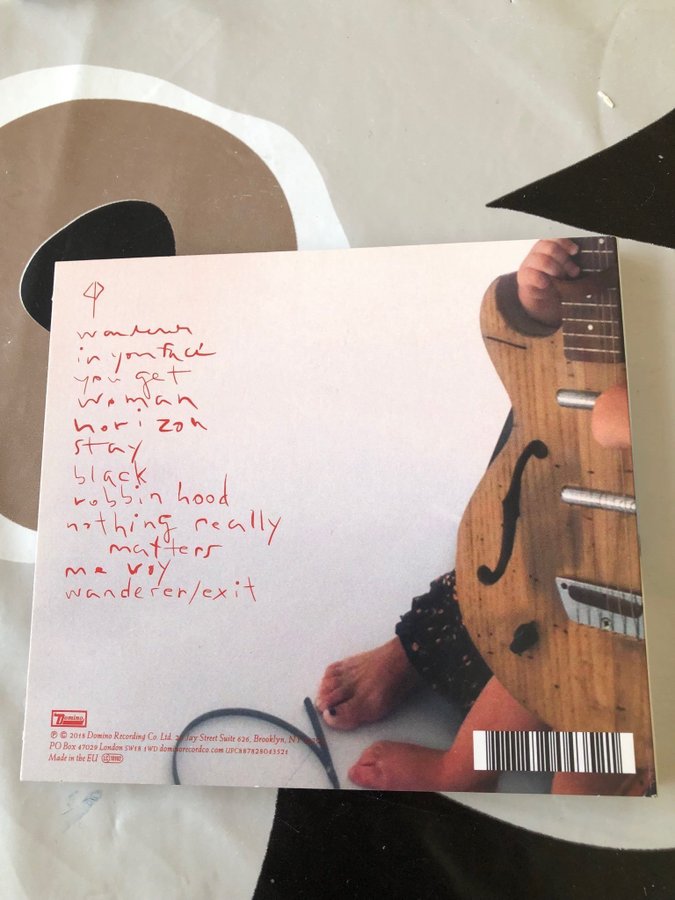 wanderer
in your face
you get
woman
horizon
stay
black
robbin hood
nothing really
matters
me voy
wanderer/exit
Domino
℗ © 2018 Domino Recording Co. Ltd. 20 Jay Street Suite 626, Brooklyn, NY
PO Box 47029 London SW18 1WD dominorecordco.com UPC887828043521
Made in the EU